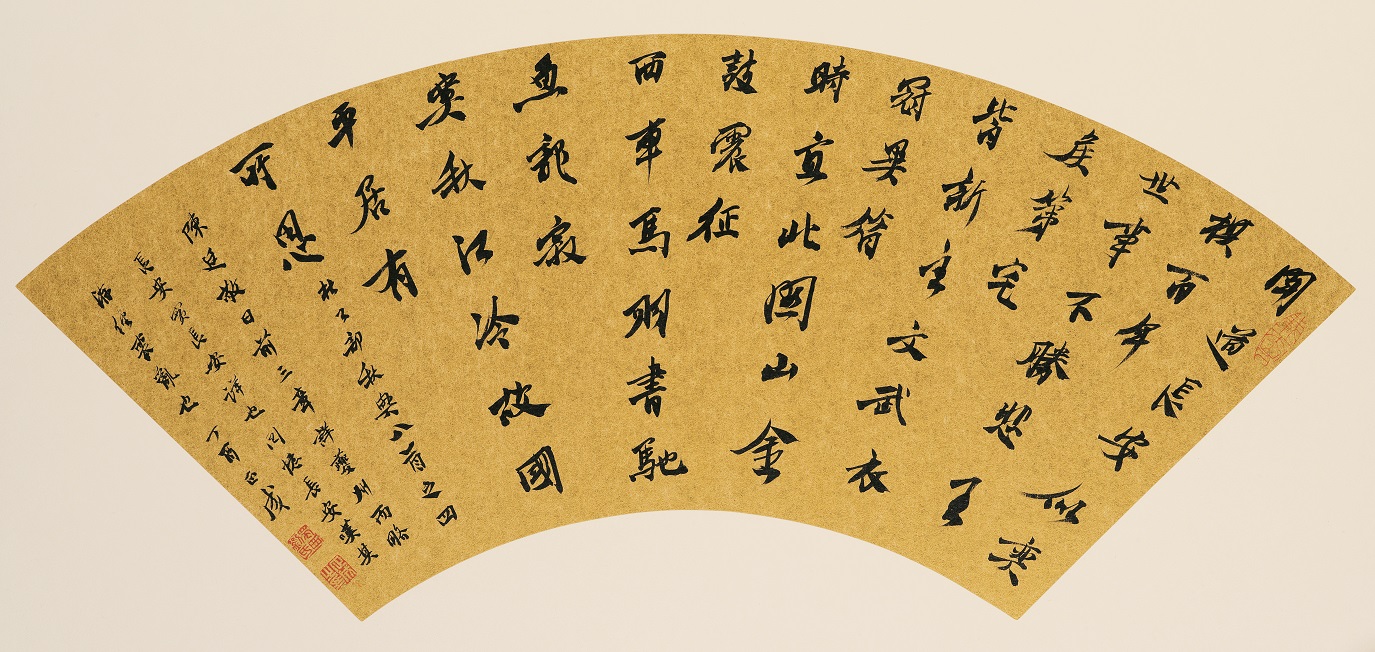 聞道長安似奕
棋百年
世事不勝悲王
侯第宅
皆新主文武衣
冠異昔
時直北關山金
鼓震征
西車馬羽書馳
魚龍寂
寞秋江冷故國
平居有
所思
杜工部秋興八首之四
陳廷敬曰前三章詳夔州而略
長安實長安詳也回憶長安嘆其
洊經喪亂也丁酉正成